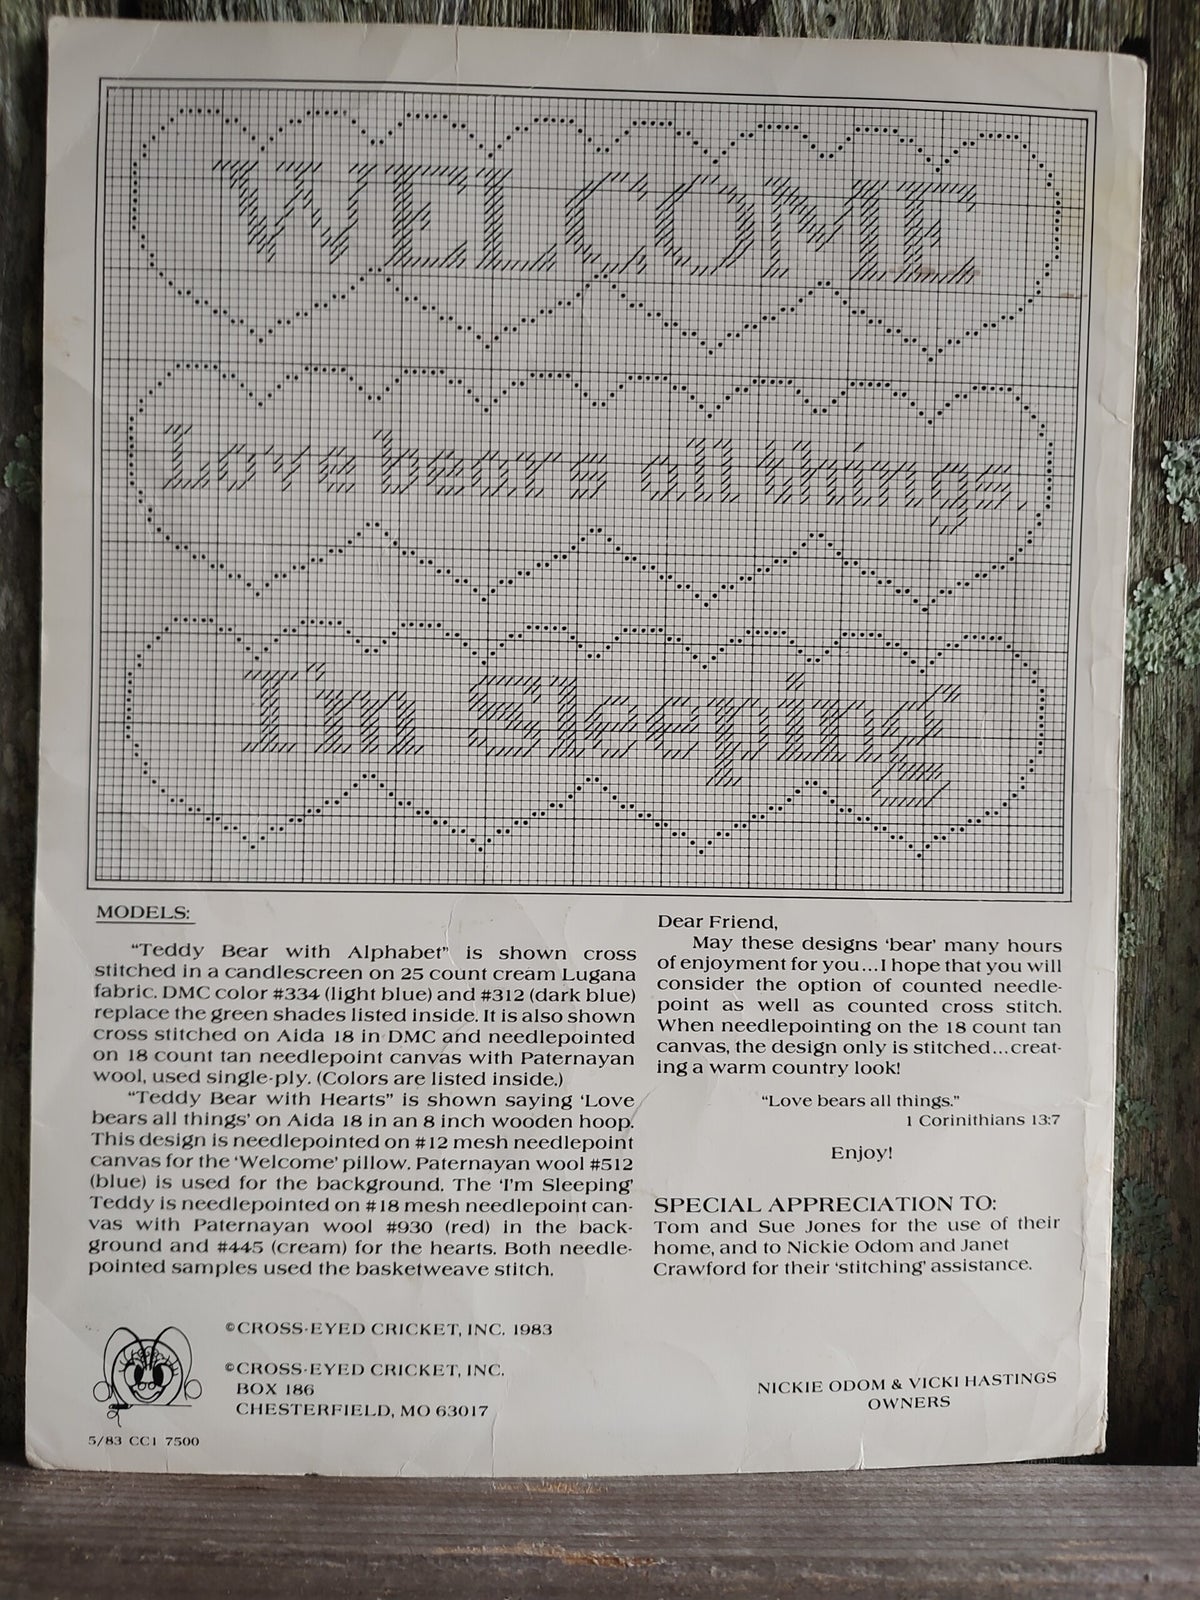 WELCOME
Love bears all things.
I'm Sleeping
MODELS:
“Teddy Bear with Alphabet” is shown cross
stitched in a candlescreen on 25 count cream Lugana
fabric. DMC color #334 (light blue) and #312 (dark blue)
replace the green shades listed inside. It is also shown
cross stitched on Aida 18 in DMC and needlepointed
on 18 count tan needlepoint canvas with Paternayan
wool, used single-ply. (Colors are listed inside.)
“Teddy Bear with Hearts” is shown saying ‘Love
bears all things’ on Aida 18 in an 8 inch wooden hoop.
This design is needlepointed on #12 mesh needlepoint
canvas for the ‘Welcome’ pillow. Paternayan wool #512
(blue) is used for the background. The ‘I'm Sleeping’
Teddy is needlepointed on #18 mesh needlepoint can-
vas with Paternayan wool #930 (red) in the back-
ground and #445 (cream) for the hearts. Both needle-
pointed samples used the basketweave stitch.
Dear Friend,
May these designs ‘bear’ many hours
of enjoyment for you...I hope that you will
consider the option of counted needle-
point as well as counted cross stitch.
When needlepointing on the 18 count tan
canvas, the design only is stitched...creat-
ing a warm country look!
“Love bears all things.”
1 Corinithians 13:7
Enjoy!
SPECIAL APPRECIATION TO:
Tom and Sue Jones for the use of their
home, and to Nickie Odom and Janet
Crawford for their ‘stitching’ assistance.
©CROSS-EYED CRICKET, INC. 1983
©CROSS-EYED CRICKET, INC.
BOX 186
CHESTERFIELD, MO 63017
NICKIE ODOM & VICKI HASTINGS
OWNERS
5/83 CCI 7500